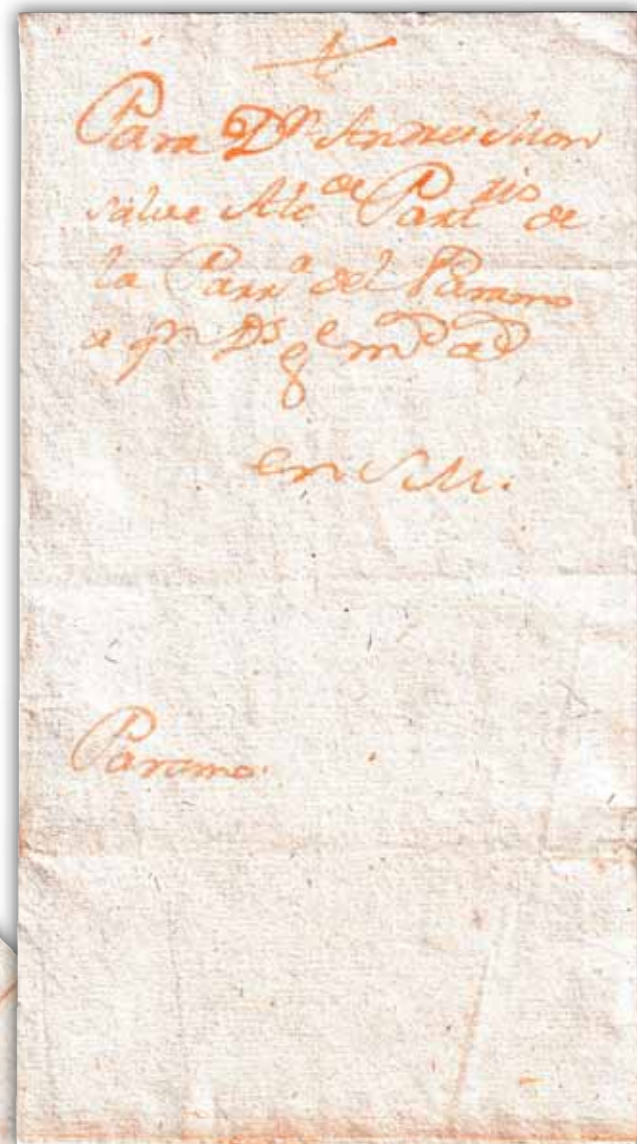 Para Dn. Andres Mon
salve Alcde Partris de
la Parra del Paramo
a qn Ds ge ms as
en S. M.
Paramo.